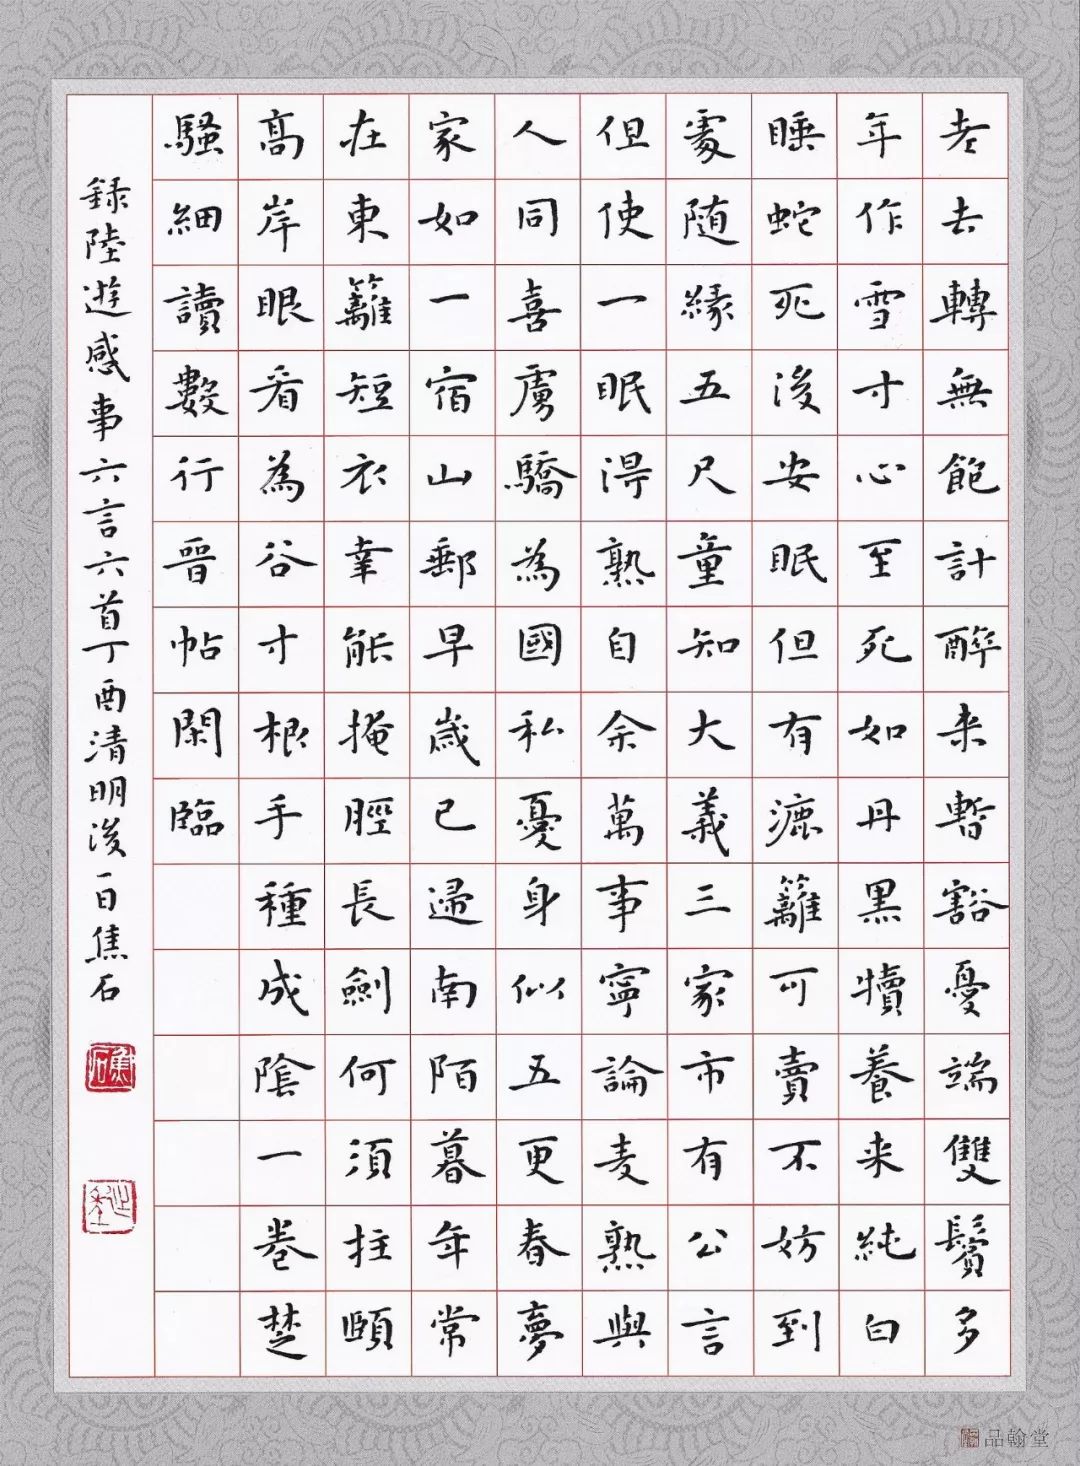 老去轉無飽計醉来暫豁憂端雙鬢多
年作雪寸心至死如丹黒犢養来純白
睡蛇死後安眠但有漉籬可賣不妨到
處随緣五尺童知大義三家市有公言
但使一眠得熟自余萬事寧論麦熟與
人同喜虜驕為國私憂身似五更春夢
家如一宿山郵早歳已歸南陌暮年常
在東籬短衣幸能掩脛長劍何須拄頤
高岸眼看為谷寸根手種成陰一卷楚
騷細讀數行晉帖閑臨
録陸遊感事六言六首丁酉清明後一日焦石
焦石
品翰堂